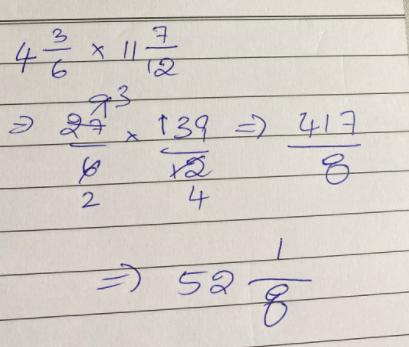 4 3/6 × 11 7/12
⇒ 27/6 × 139/12 ⇒ 417/8
9 3
2 4
⇒ 52 1/8